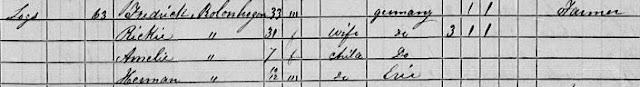 Logs 63 Fredrick Rolonhegen 33 m germany 1 1 Farmer
Rickie " 31 f wife Do 3 1 1
Amelie " 7 f child Do
Herman " 7/12 m Do Erie